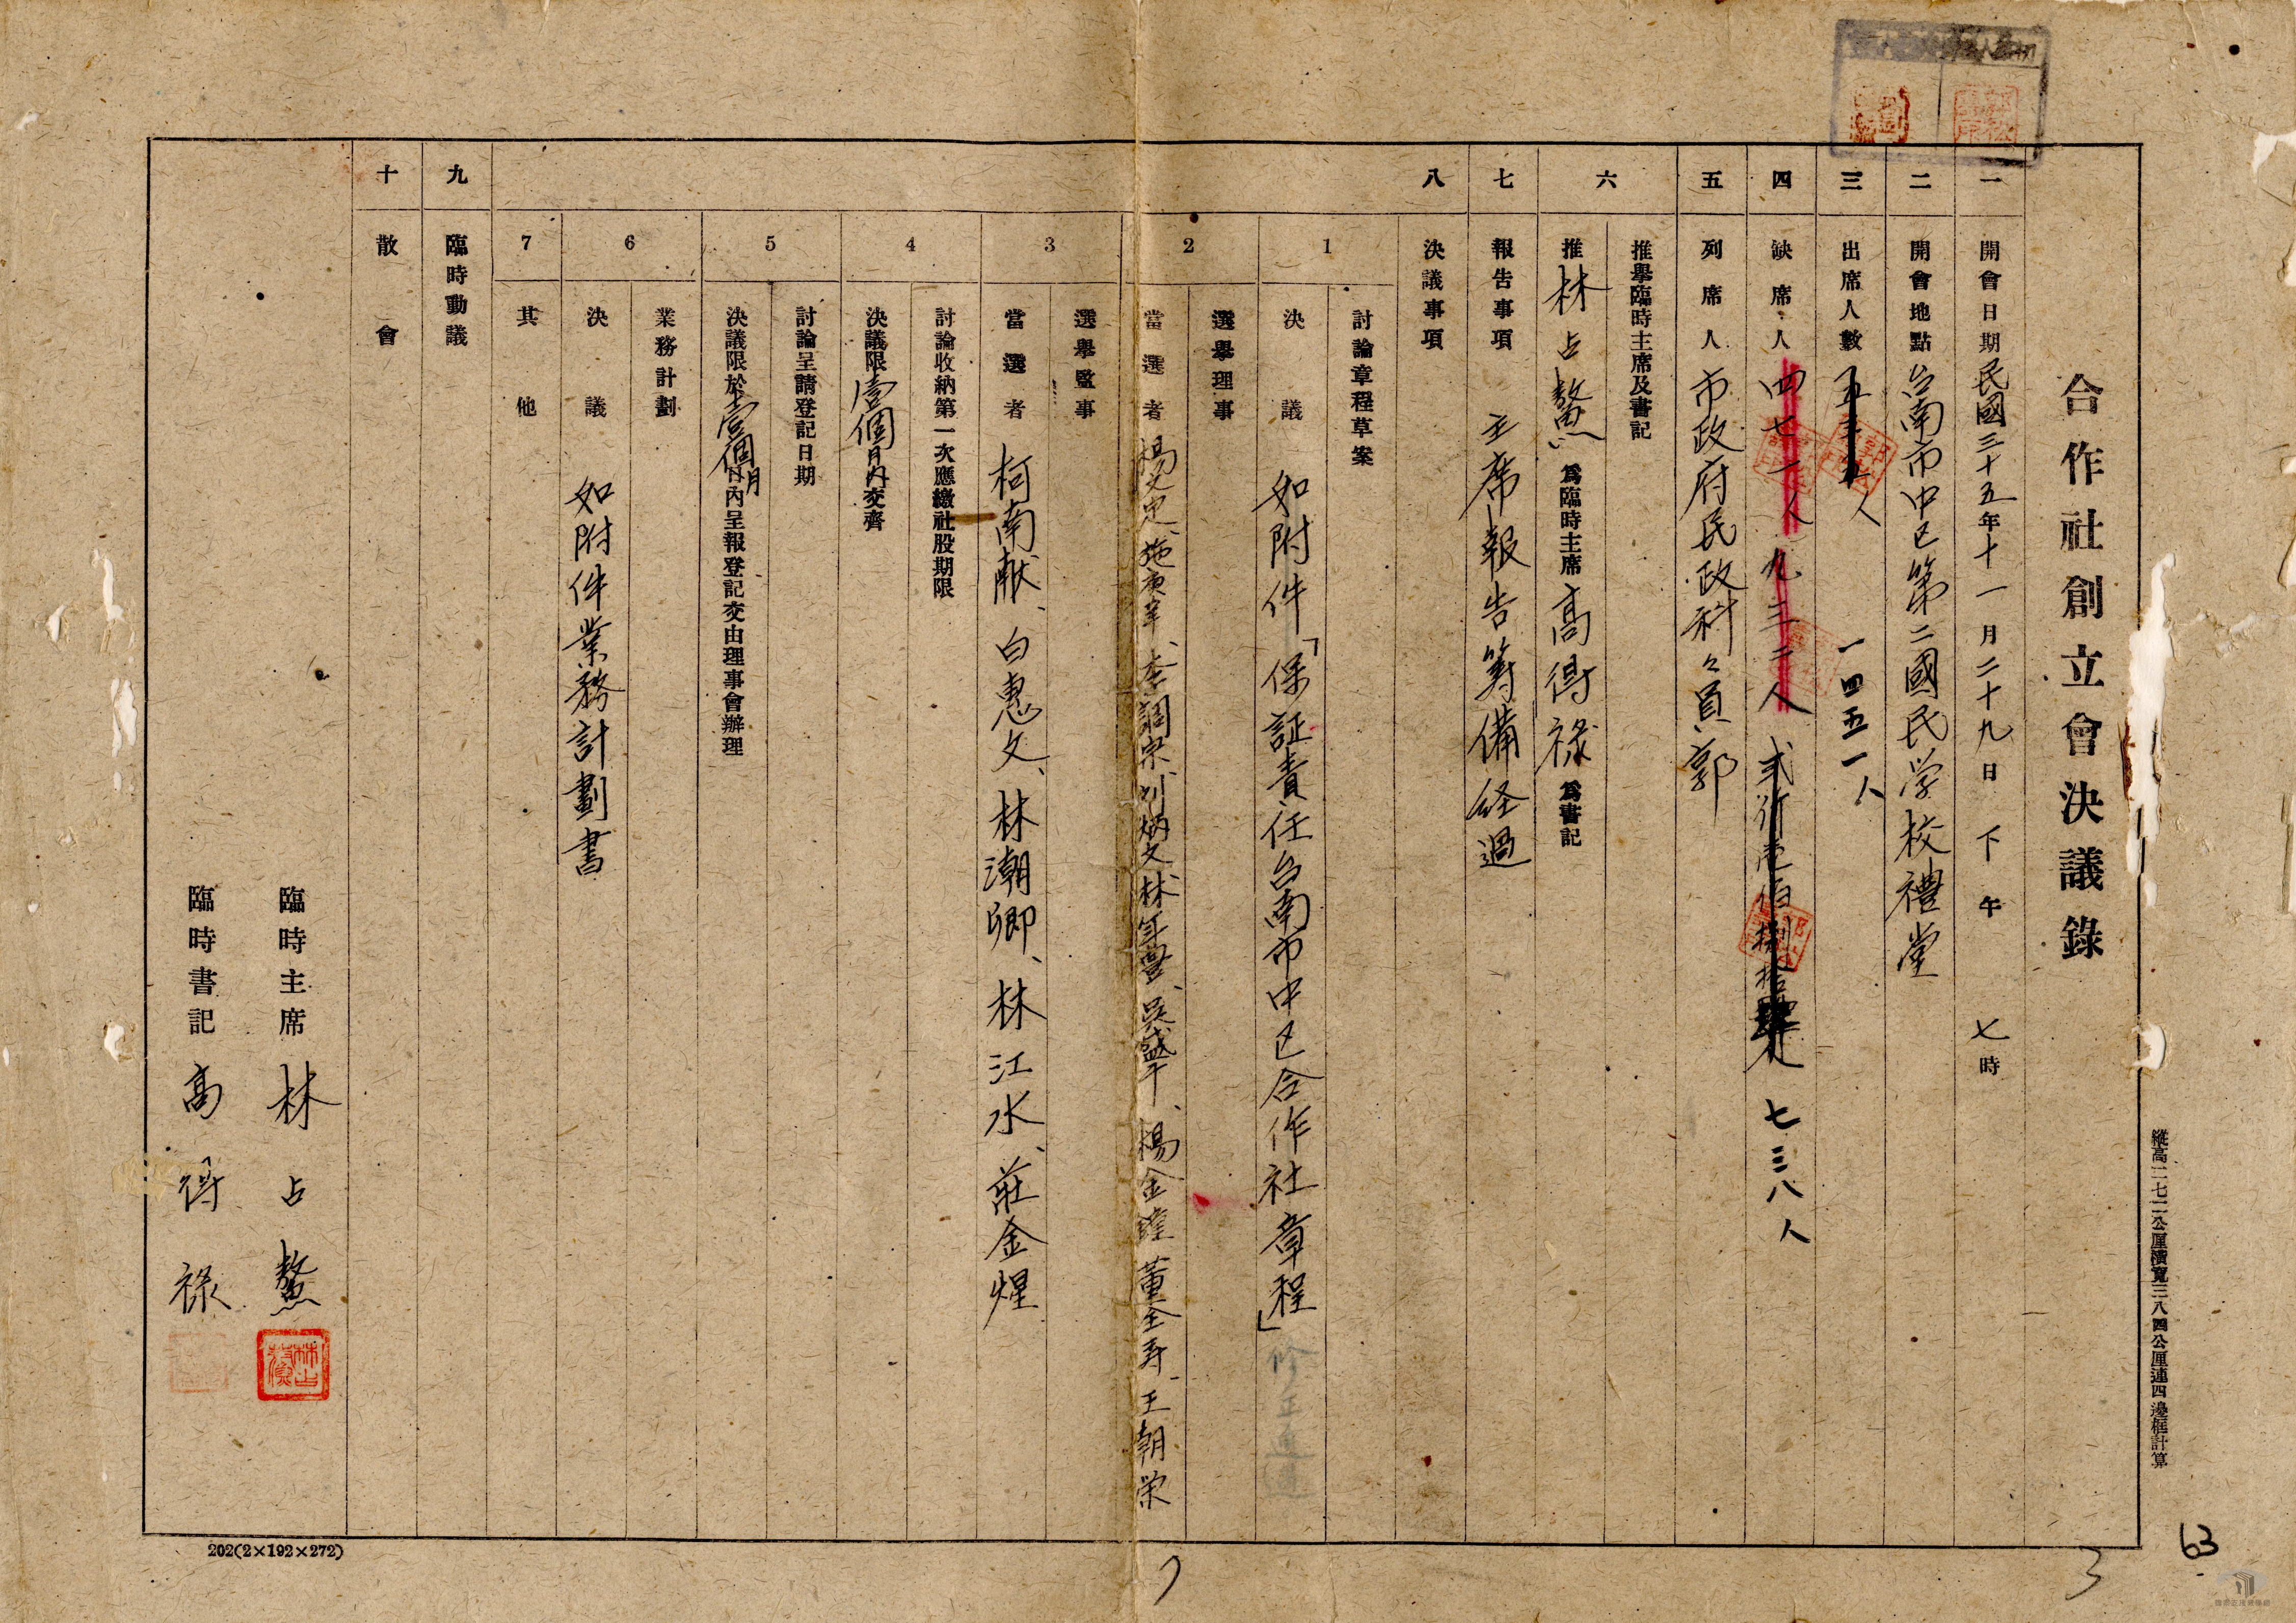 合作社創立會決議錄
一 開會日期 民國三十五年十一月二十九日 下午 七時
二 開會地點 台南市中区第二國民学校禮堂
三 出席人數 人 一四五一人
四 缺席人 四七一人 九三二人 七三八人
五 列席人 市政府民政科々員 郭
六 推舉臨時主席及書記
推林占鰲為臨時主席 高得祿為書記
七 報告事項 主席報告籌備経過
八 決議事項
1 討論章程草案
決議 如附件「保証責任台南市中区合作社章程」修正通過
2 選舉理事
當選者 楊文忠、施庚辛、李調宗、刘炳文、林年豐、吳盛平、楊金鐘 董全寿、王朝栄
3 選舉監事
當選者 柯南献、白惠文、林潮卿、林江水、莊金煋
4 討論收納第一次應繳社股期限
決議限壹個月內交齊
5 討論呈請登記日期
決議限於壹個月內呈報登記交由理事會辦理
6 業務計劃
決議 如附件業務計劃書
7 其他
九 臨時動議
十 散會
臨時主席 林占鰲
臨時書記 高得祿
縱高二七二公厘濱寬三八四公厘連四邊框計算
202(2×192×272)
63